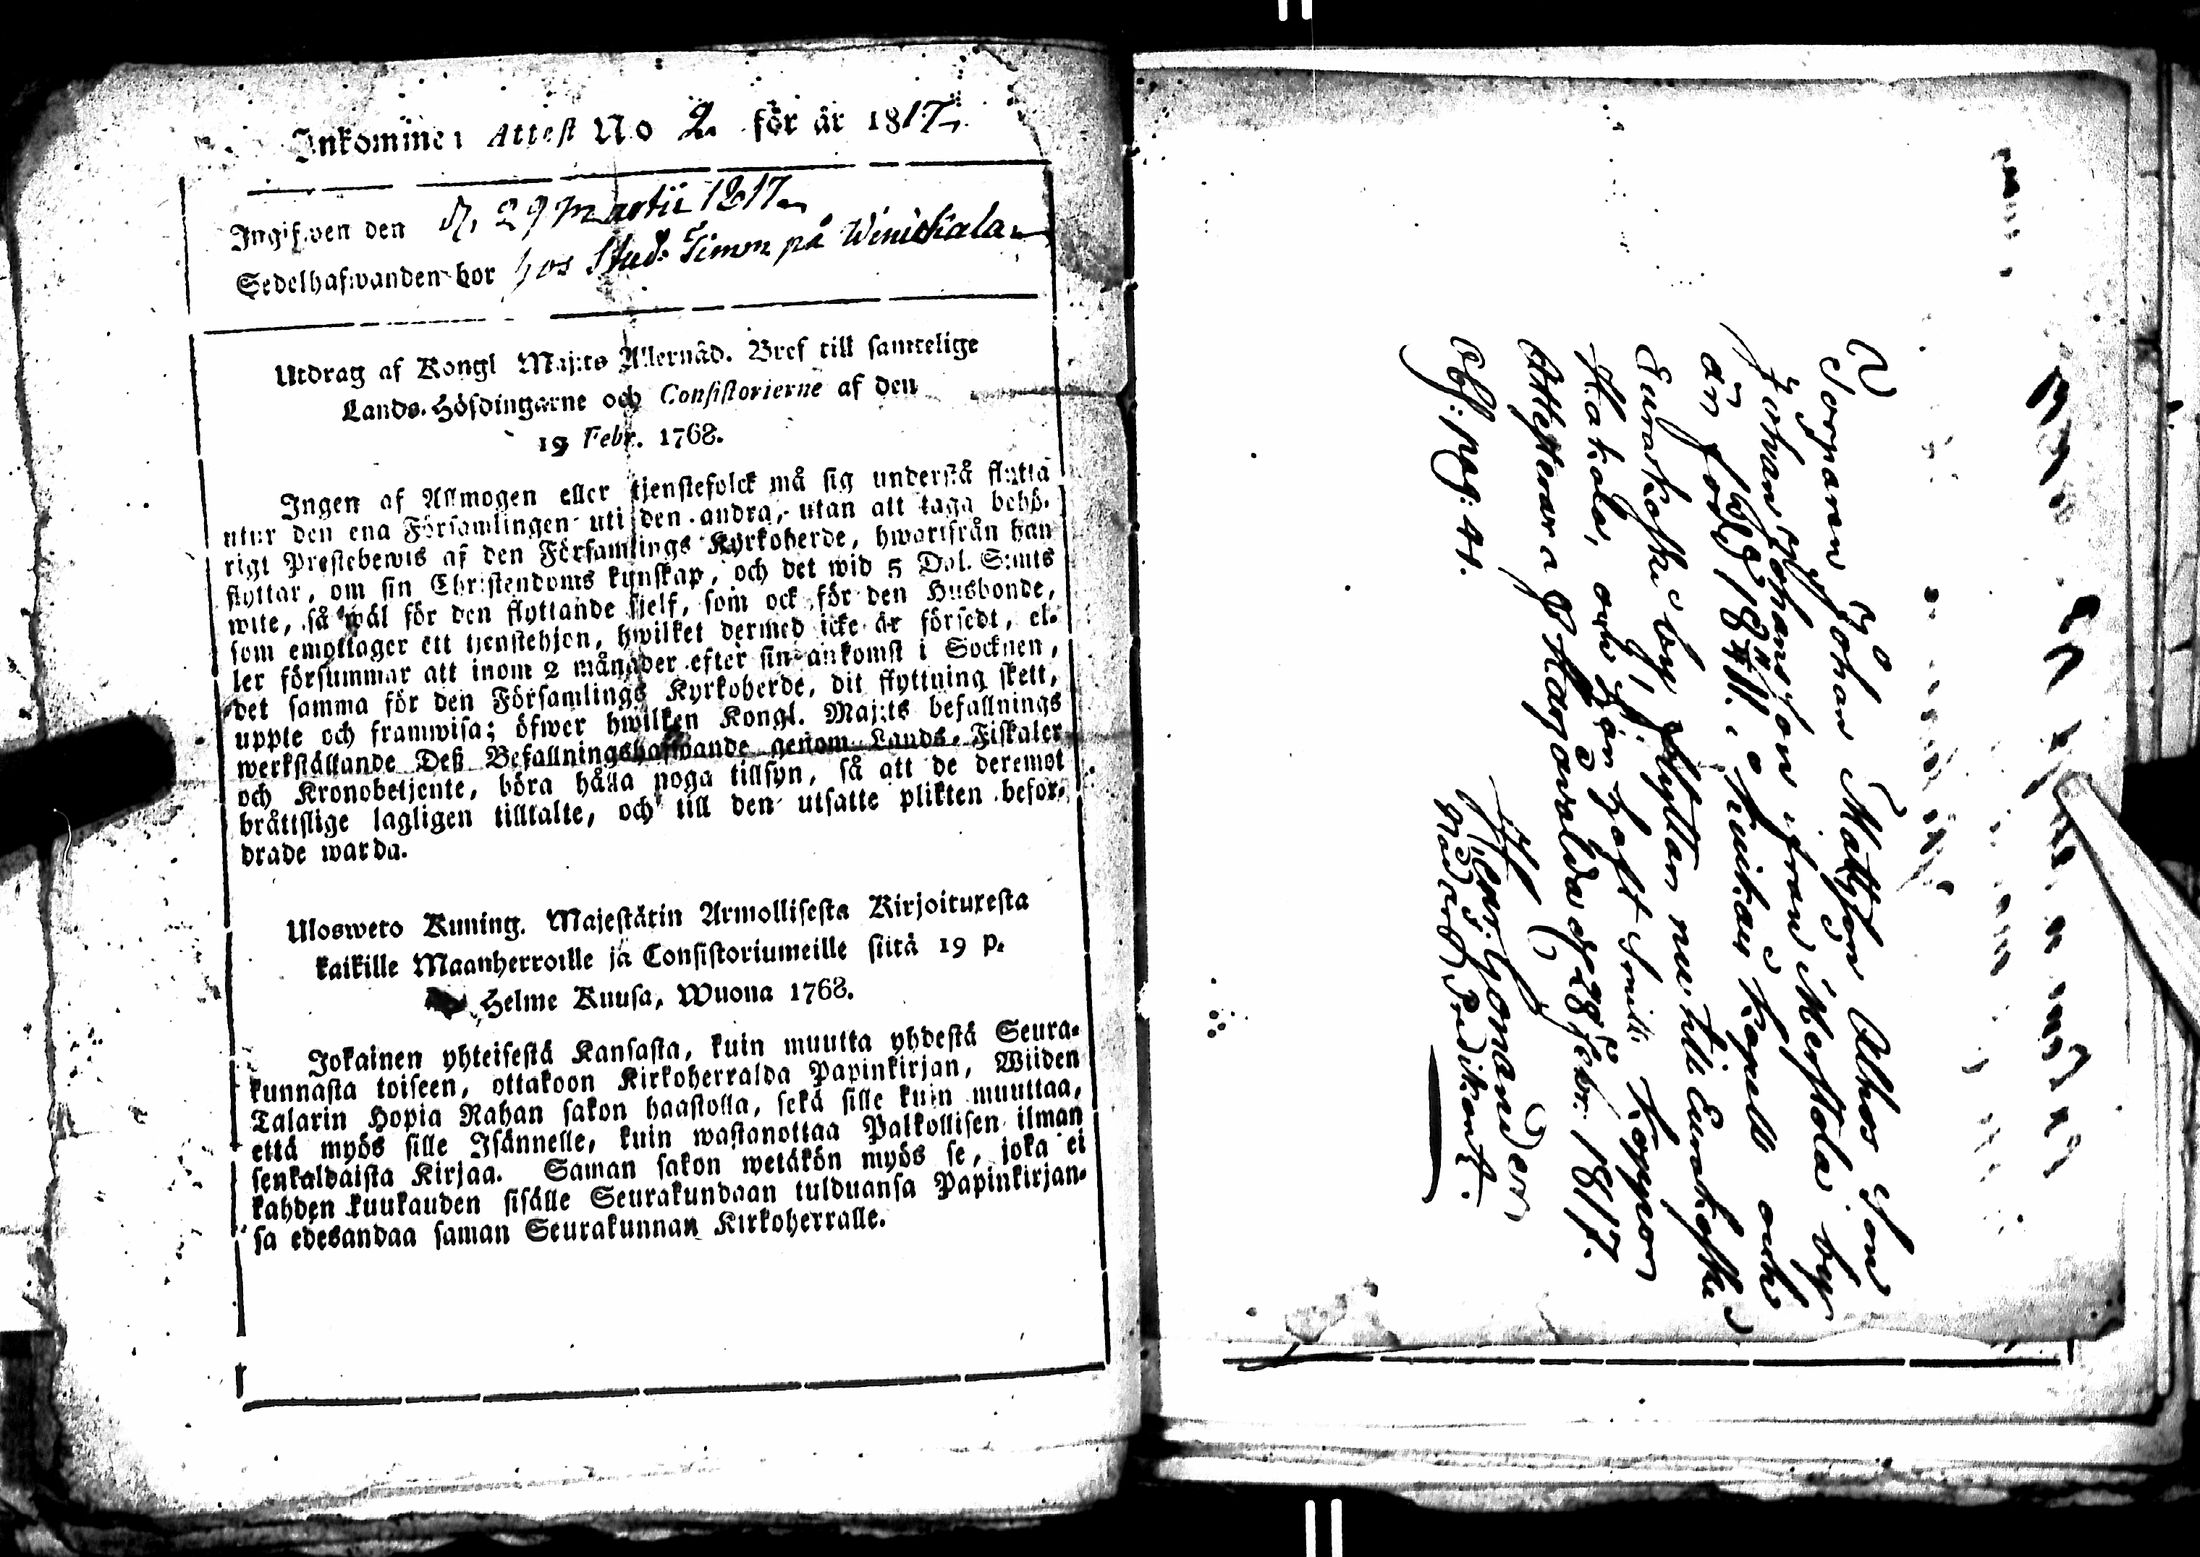 Inkommen Attest No 2. för år 1817.
Ingifwen den d. 29 Martii 1817.
Sedelhafwanden bor hos Stud: Timm på Winickala.
Utdrag af Kongl Maj:ts Allernåd. Bref till samtelige
Lands-Höfdingarne och Consistorierne af den
19 Febr. 1768.
Ingen af Allmogen eller tjenstefolck må sig understå flytta
utur den ena Församlingen uti den andra, utan att taga behö-
rigt Prestebewis af den Församlings Kyrkoherde, hwartifrån han
flyttar, om sin Christendoms kunskap, och det wid 5 Dal. S:mts
wite, så wäl för den flyttande sjelf, som ock för den Husbonde,
som emottager ett tjenstehjon, hwilket dermed icke är försedt, el-
ler försummar att inom 2 månader efter sin ankomst i Socknen,
det samma för den Församlings Kyrkoherde, dit flyttning skett,
uppte och framwisa; öfwer hwilken Kongl. Maj:ts befallnings
werkställande Deß Befallningshafwande genom Lands-Fiskaler
och Kronobetjente, böra hålla noga tillsyn, så att de deremot
bråttslige lagligen tilltalte, och till den utsatte plikten befor-
drade warda.
Ulosweto Kuning. Majestätin Armollisesta Kirjoituxesta
kaikille Maanherroille ja Consistoriumeille siitä 19 p.
Helme Kuusa, Wuona 1768.
Jokainen yhteisestä Kansasta, kuin muutta yhdestä Seura-
kunnasta toiseen, ottakoon Kirkoherralda Papinkirjan, Wiiden
Talarin Hopia Rahan sakon haastolla, sekä sille kuin muuttaa,
että myös sille Isännelle, kuin wastanottaa Palkollisen ilman
senkaldaista Kirjaa. Saman sakon wetäkön myös se, joka ei
kahden kuukauden sisälle Seurakundaan tulduansa Papinkirjan-
sa edesandaa saman Seurakunnan Kirkoherralle.
Sorgaren Johan Mattsson Alhos son
Johan Johansson ifrån Merstola by
än född 18 i Kuikais Kapell och
Eurakoski by flyttar nu till Eurakoski
Hakola, och Han haft Smitt Koppor
Attesterar Skargowalda d 28 Febr. 1817.
pag: 41.